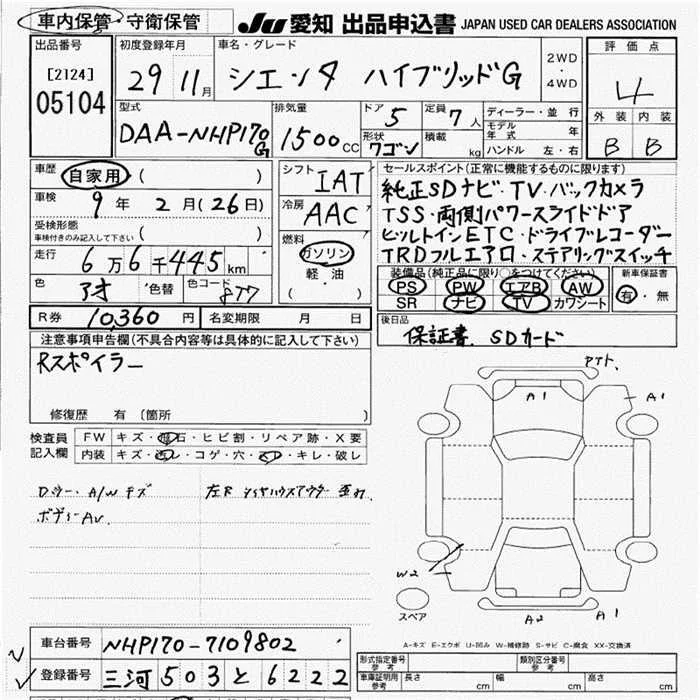 車内保管・守衛保管 JU 愛知 出品申込書 JAPAN USED CAR DEALERS ASSOCIATION
出品番号 [2124] 05104
初度登録年月 29 11月
車名・グレード シエンタ ハイブリッドG
2WD・4WD
評価点 4
外装 内装
B B
型式 DAA-NHP170G
排気量 1500cc
ドア 5
定員 7人
形状 ワゴン
積載 kg
ディーラー・並行
モデル年式 年
ハンドル 左・右
車歴 自家用 ( )
車検 9年 2月(26日)
受検形態 車検付きのみ記入して下さい ( )
走行 6万6千445km
色 アオ 色替 色コード 8T7
シフト IAT
冷房 AAC
燃料 ガソリン
軽・油
( )
セールスポイント(正常に機能するものに限ります)
純正SDナビ・TV・バックカメラ
TSS・両側パワースライドドア
ビルトインETC・ドライブレコーダー
TRDフルエアロ・ステアリングスイッチ
装備品(純正品に限り○をつけてください)
PS PW エアB AW
SR ナビ TV カワシート
新車保証書
有・無
R券 10,360円 名変期限 月 日
後日品 保証書 SDカード
注意事項申告欄(不具合内容等は具体的に記入して下さい)
Rスポイラー
修復歴 有(箇所 )
検査員記入欄
FW キズ・飛石・ヒビ割・リペア跡・X要
内装 キズ・ヨゴレ・コゲ・穴・スレ・キレ・破レ
A/Wキズ
左R
ボディーAU
A1
A1
W2
A2 A1
スペア
A-キズ E-エクボ U-凹み W-補修跡 S-サビ C-腐食 XX-交換済
車台番号 NHP170-7109802
登録番号 三河503と6222
形式指定番号 参考 類別区分番号 参考
車庫証明用 参考 長さ cm 幅 cm 高さ cm